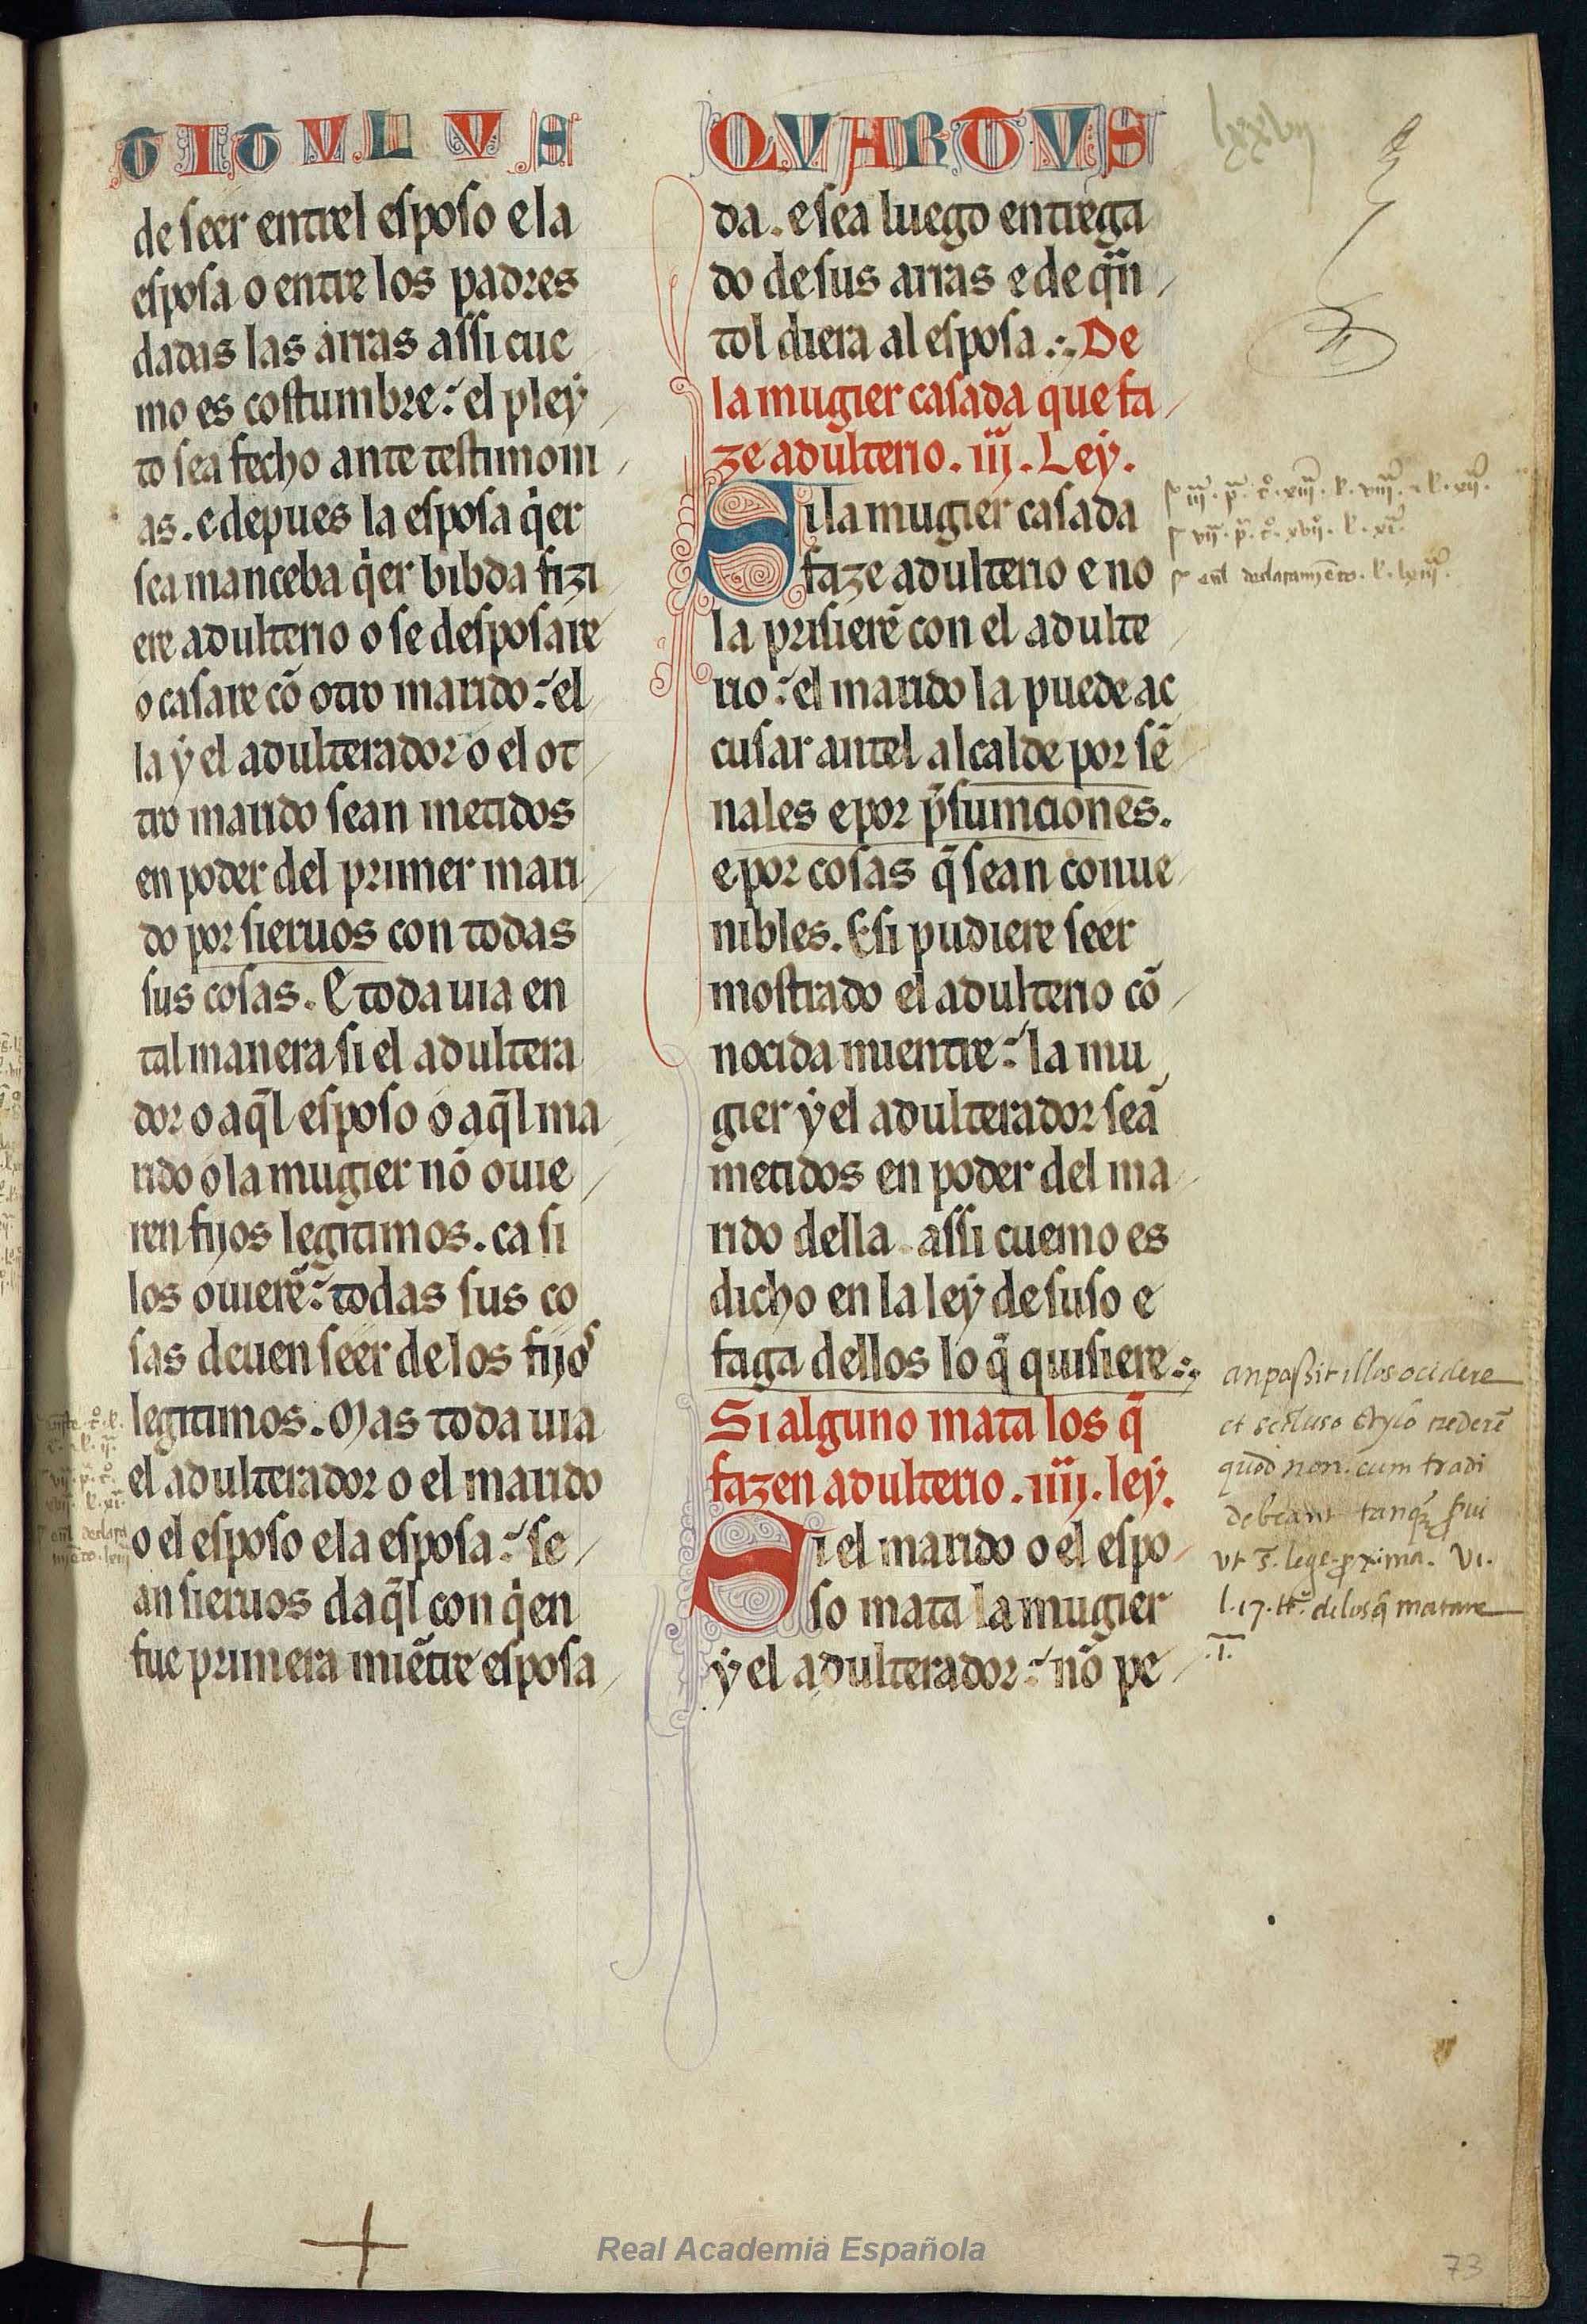 TITULUS QUARTUS
de seer entrel esposo e la
esposa o entre los padres
dadas las arras assi cue
mo es costumbre: el pleẏ
to sea fecho ante testimoni
as. e depues la esposa q̇er
sea manceba q̇er bibda fizi
ere adulterio o se desposare
o casare cõ otro marido: el
la ẏ el adulterador o el ot
tro marido sean metidos
en poder del primer mari
do por sieruos con todas
sus cosas. E toda uia en
tal manera si el adultera
dor o aq̃l esposo o aq̃l ma
rido o la mugier nõ ouie
ren fijos legitimos. ca si
los ouierẽ: todas sus co
sas deuen seer de los fijos
legitimos. Mas toda uia
el adulterador o el marido
o el esposo e la esposa: se
an sieruos daq̃l con q̇en
fue primera miẽtre esposa
da. e sea luego entrega
do de sus arras e de qñ
tol diera al esposa. De
la mugier casada que fa
ze adulterio. iij. Leẏ.
Si la mugier casada
faze adulterio e no
la prisierẽ con el adulte
rio: el marido la puede ac
cusar antel alcalde por sẽ
nales e por p̃sumciones.
e por cosas q̃ sean conue
nibles. E si pudiere seer
mostrado el adulterio cõ
nocida mientre: la mu
gier ẏ el adulterador seã
metidos en poder del ma
rido della. assi cuemo es
dicho en la leẏ de suso e
faga dellos lo q̃ quisiere.
Si alguno mata los q̃
fazen adulterio. iiij. leẏ.
Si el marido o el espo
so mata la mugier
ẏ el adulterador: nõ pe
lxxvij
an possit illos ocidere
quod non cum tradi
debeant
l. 17. tt. de los q̃ matare
Real Academia Española
73